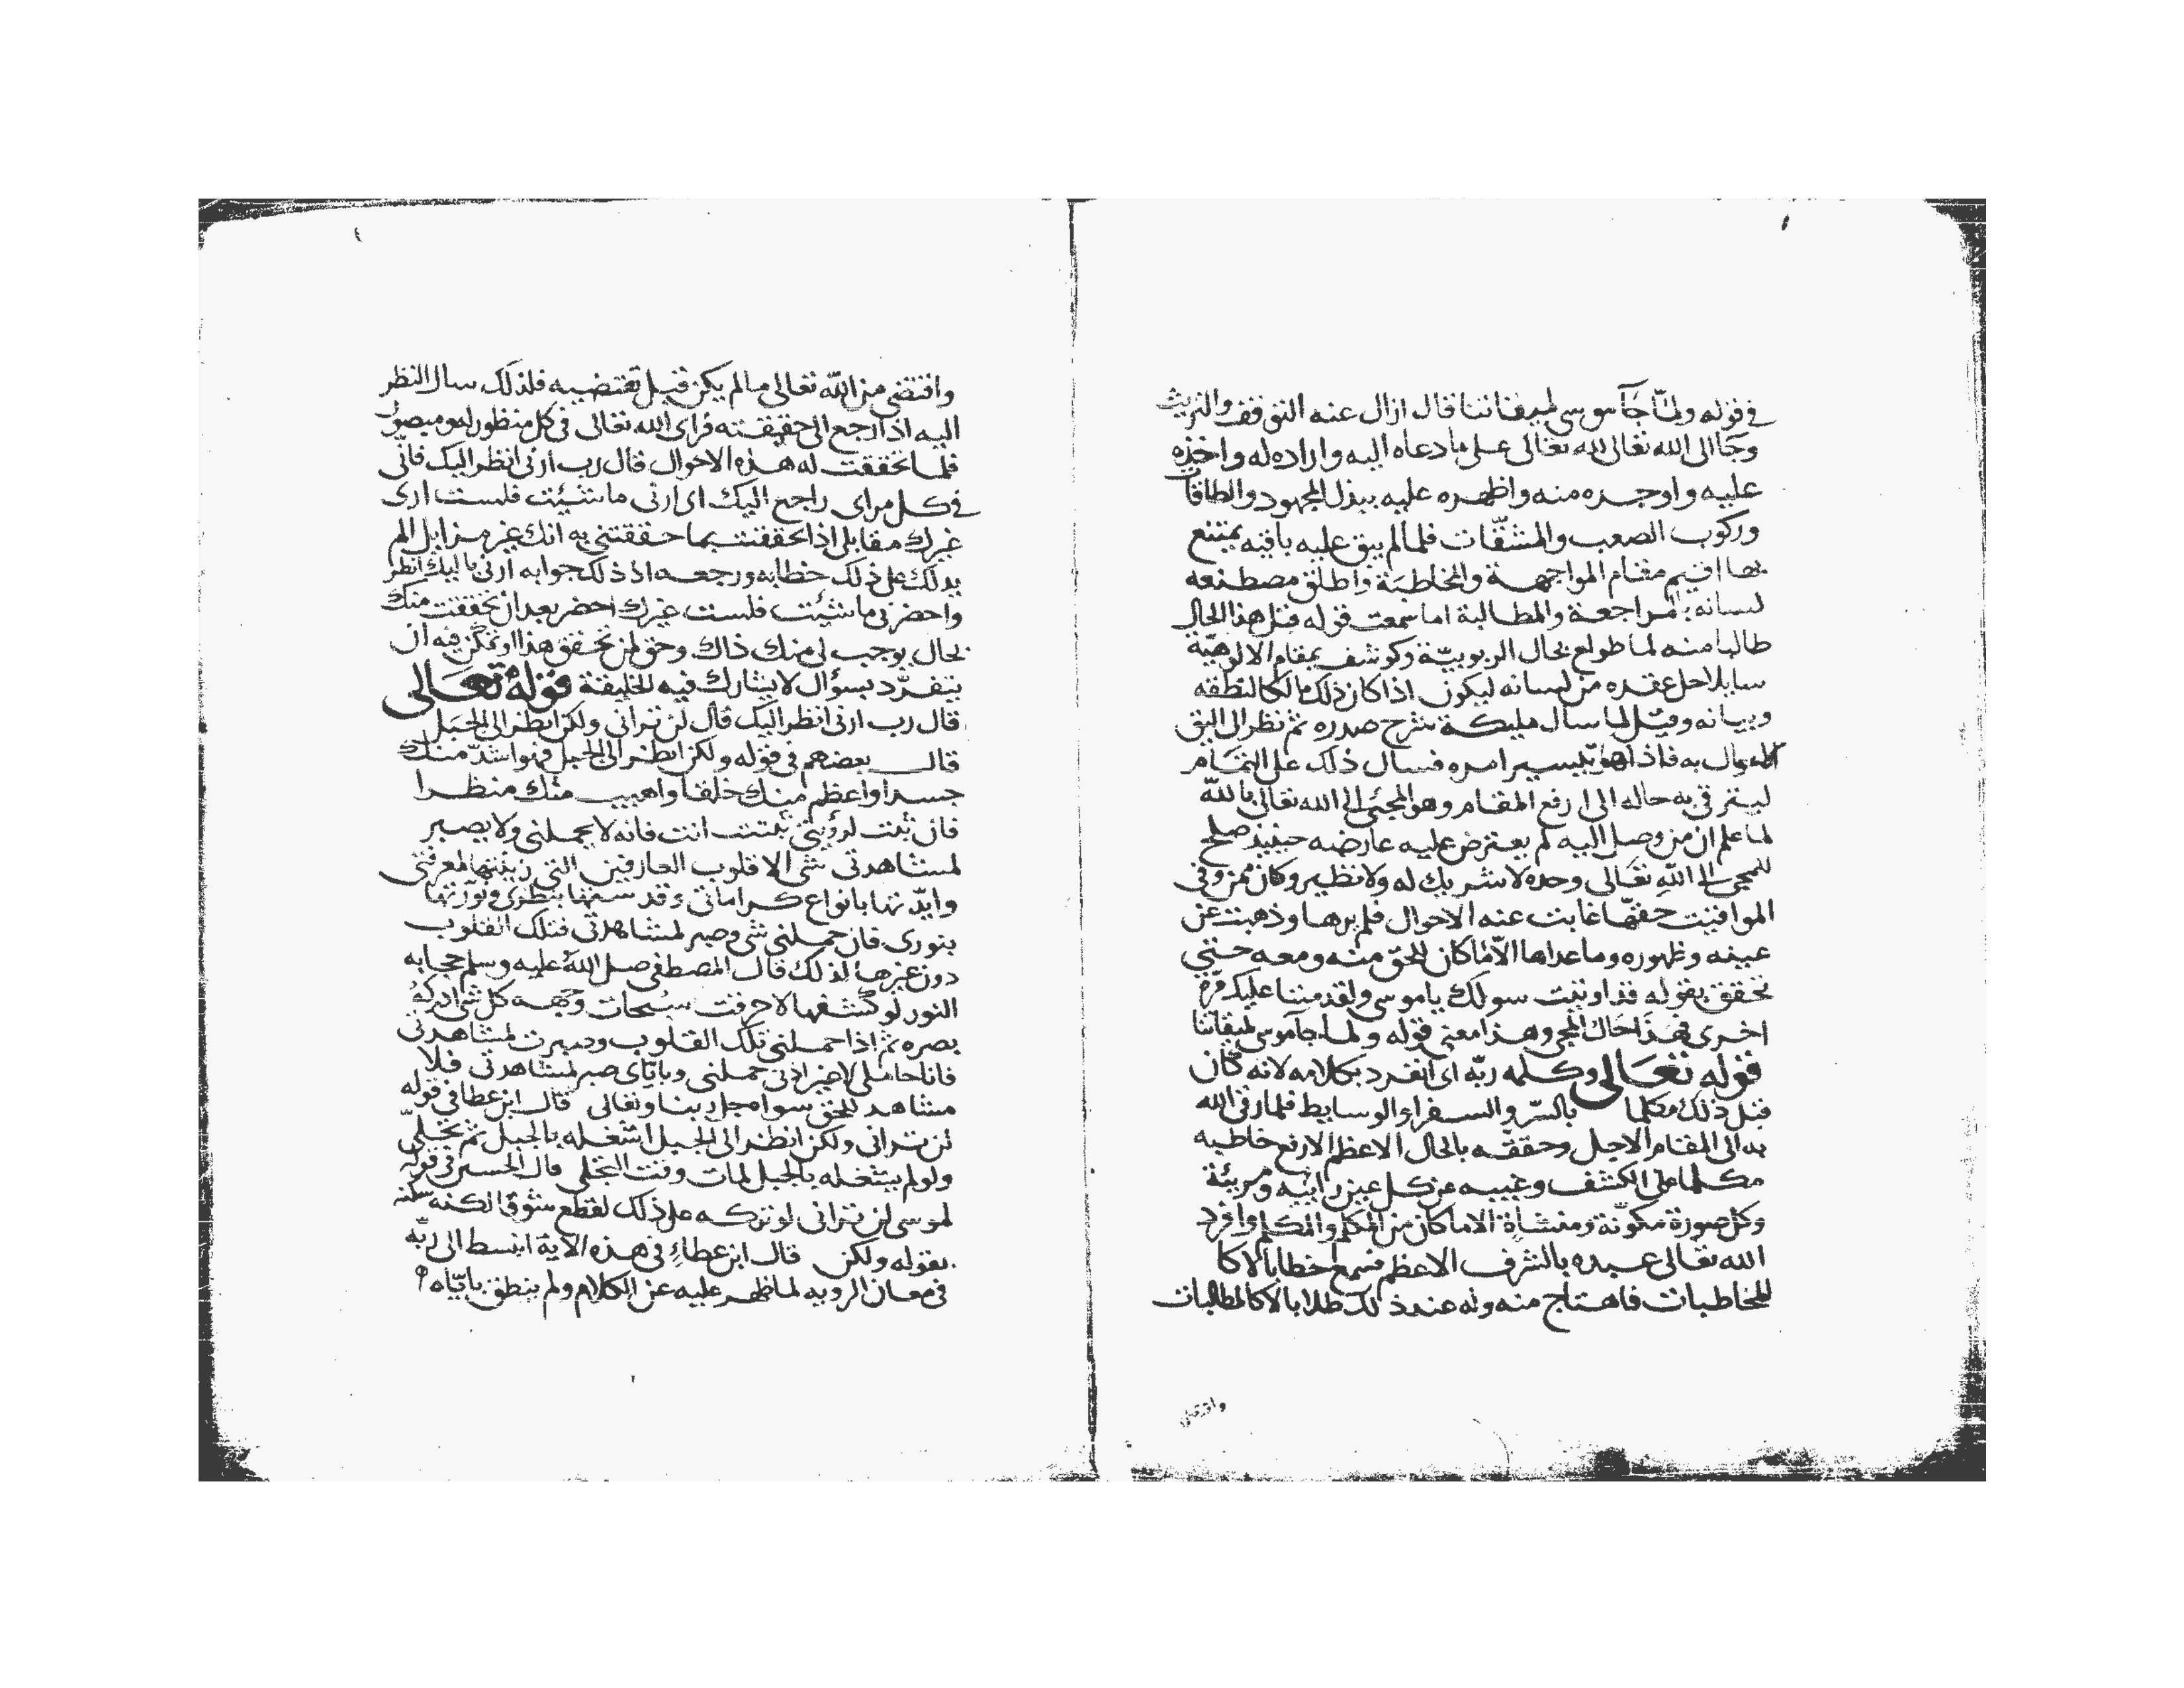 في قوله ولمّا جآ موسى لميقاتنا قال ازال عنه التوقف والتريث
وجا الى الله تعالى لله تعالى على ما دعاه اليه واراده له واخذه
عليه واوجده منه واظهره عليه ببذل المجهود والطاقات
وركوب الصعب والمشقّات فلما لم يبق عليه باقيه يمتنع
بها اقيم مقام المواجهة والمخاطبة واطلق مصطنعه
لسانه بالمراجعة والمطالبة اما سمعت قوله قبل هذا الحال
طالبا منه لما طولع بحال الربوبيّة وكوشف بمقام الالوهيّة
سايلا حل عقده من لسانه ليكون اذا كان ذلك مالكا لنطقه
وبيانه وقيل لما سال مليكه شرح صدره ثم نظر الى اليق
به فاذا هو تيسير امره فسال ذلك على التمام
ليترقى به حاله الى ارفع المقام وهو المجئ الى الله تعالى بالله
لما علم ان من وصل اليه لم يعترض عليه عارضه حينيذ صلح
للمجئ الى الله تعالى وحده لا شريك له ولا نظير وكان ممن وفى
المواقيت حقّها غابت عنه الاحوال فلم يرها وذهبت عن
عينه وظهوره وما عداها الاّ ما كان للحق منه ومعه حتى
تحقق بقوله قد اوتيت سولك ياموسى ولقد مننا عليك مرّة
اخرى فهذا حاك المجئ وهذا معنى قوله ولما جآ موسى لميقاتنا
قوله تعالى وكلمه ربّه اى انفرد بكلامه لانه كان
قبل ذلك مكلما بالسّر والسفراء الوسايط فلما رقى الله
به الى المقام الاجل وحققه بالحال الاعظم الارفع خاطبه
مكلما على الكشف وغيبه عن كل عين رائيه ومريئة
وكل صورة مكوّنة ومنشأة الا ما كان من المكلم والمكلم وافرد
الله تعالى عبده بالشرف الاعظم فسمع خطابا لا كا
للمخاطبات فاهتاج منه وله عند ذلك طلابا لا كالمطالبات
واقتضى
واقتضى من الله تعالى ما لم يكن قبل تقتضيه فلذلك سال النظر
اليه اذا رجع الى حقيقته فراى الله تعالى فى كل منظور له ومبصور
فلما تحققت له هذه الاحوال قال رب ارنى انظر اليك فانّى
في كل مراى راجع اليك اى ارنى ما شئت فلست ارى
غيرك مقابلى اذا تحققت بما حققتنى به انك غير مزايل الم
يدلك على ذلك خطابه ورجعه اذ ذلك جوابه ارنى باليك انظر
واحضرنى ما شئت فلست غيرك احضر بعد ان تحققت منك
بحال يوجب لى منك ذاك وحق لمن تحقق هذا او تمكّن فيه ان
يتفرّد بسؤال لا يشارك فيه الخليقة قوله تعالى
قال رب ارنى انظر اليك قال لن ترانى ولكن انظر الى الجبل
قال بعضهم فى قوله ولكن انظر الى الجبل فهو اشدّ منك
جسدا واعظم منك خلقا واهيب منك منظرا
فان ثبت لرؤيتى ثبتّ انت فانه لا يحملنى ولا يصبر
لمشاهدتى شى الا قلوب العارفين التى زينتها بمعرفتى
وايّدتها بانواع كراماتى وقد ستها بنظرى ونوّرتها
بنورى فان حملنى شى وصبر لمشاهدتى فتلك القلوب
دون غيرها لذلك قال المصطفى صلى الله عليه وسلم حجابه
النور لو كشفها لاحرقت سبحات وجهه كل شى ادركه
بصره ثم اذا حملنى تلك القلوب وصبرت لمشاهدتى
فانا حاملى لا غير اذ بى حملنى وبايّاى صبر لمشاهدتى فلا
مشاهد للحق سواه جل ربنا وتعالى قال ابن عطا فى قوله
لن ترانى ولكن انظر الى الجبل اشغله بالجبل ثم تجلّى
ولو لم يشغله بالجبل لمات وقت التجلى قال الحسين فى قوله
لموسى لن ترانى لو تركه على ذلك لقطع شوقا لكنه سكنه
بقوله ولكن قال ابن عطاء فى هذه الاية انبسط الى ربّه
فى معان الرويه لما ظهر عليه عن الكلام ولم ينطق بايّاه